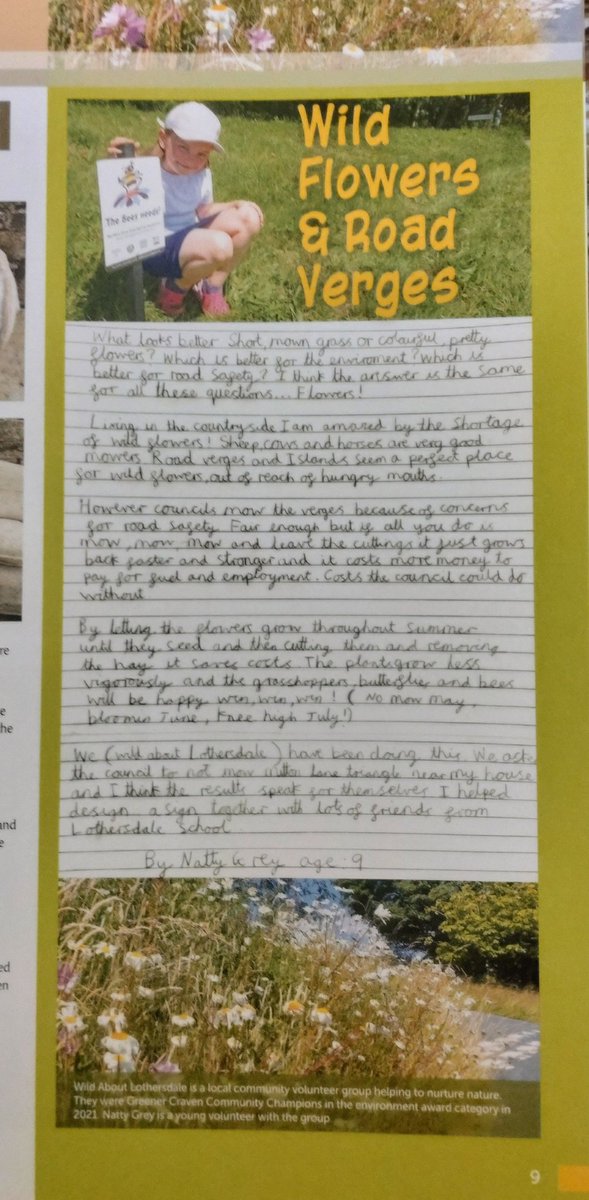 Wild
Flowers
& Road
Verges
The Bees needs!
What looks better Short, mown grass or colourful, pretty
flowers? Which is better for the enviroment? Which is
better for road safety? I think the answer is the same
for all these questions... Flowers!
Living in the countryside I am amazed by the shortage
of wild flowers! Sheep, cows and horses are very good
mowers. Road verges and Islands seem a perfect place
for wild flowers, out of reach of hungry mouths.
However councils mow the verges because of concerns
for road safety. Fair enough but if all you do is
mow, mow, mow and leave the cuttings it just grows
back faster and stronger and it costs more money to
pay for fuel and employment. Costs the council could do
without
By letting the flowers grow throughout summer
until they seed and then cutting them and removing
the hay it saves costs. The plants grow less
vigorously and the grasshoppers, butterflies and bees
will be happy win, win, win! (No mow may,
bloomin June, Knee high July!)
We (wild about Lothersdale) have been doing this. We ask
the council to not mow lane triangle near my house
and I think the results speak for themselves I helped
design a sign together with lots of friends from
Lothersdale School.
By Natty Grey age 9
Wild About Lothersdale is a local community volunteer group helping to nurture nature.
They were Greener Craven Community Champions in the environment award category in
2021. Natty Grey is a young volunteer with the group
9